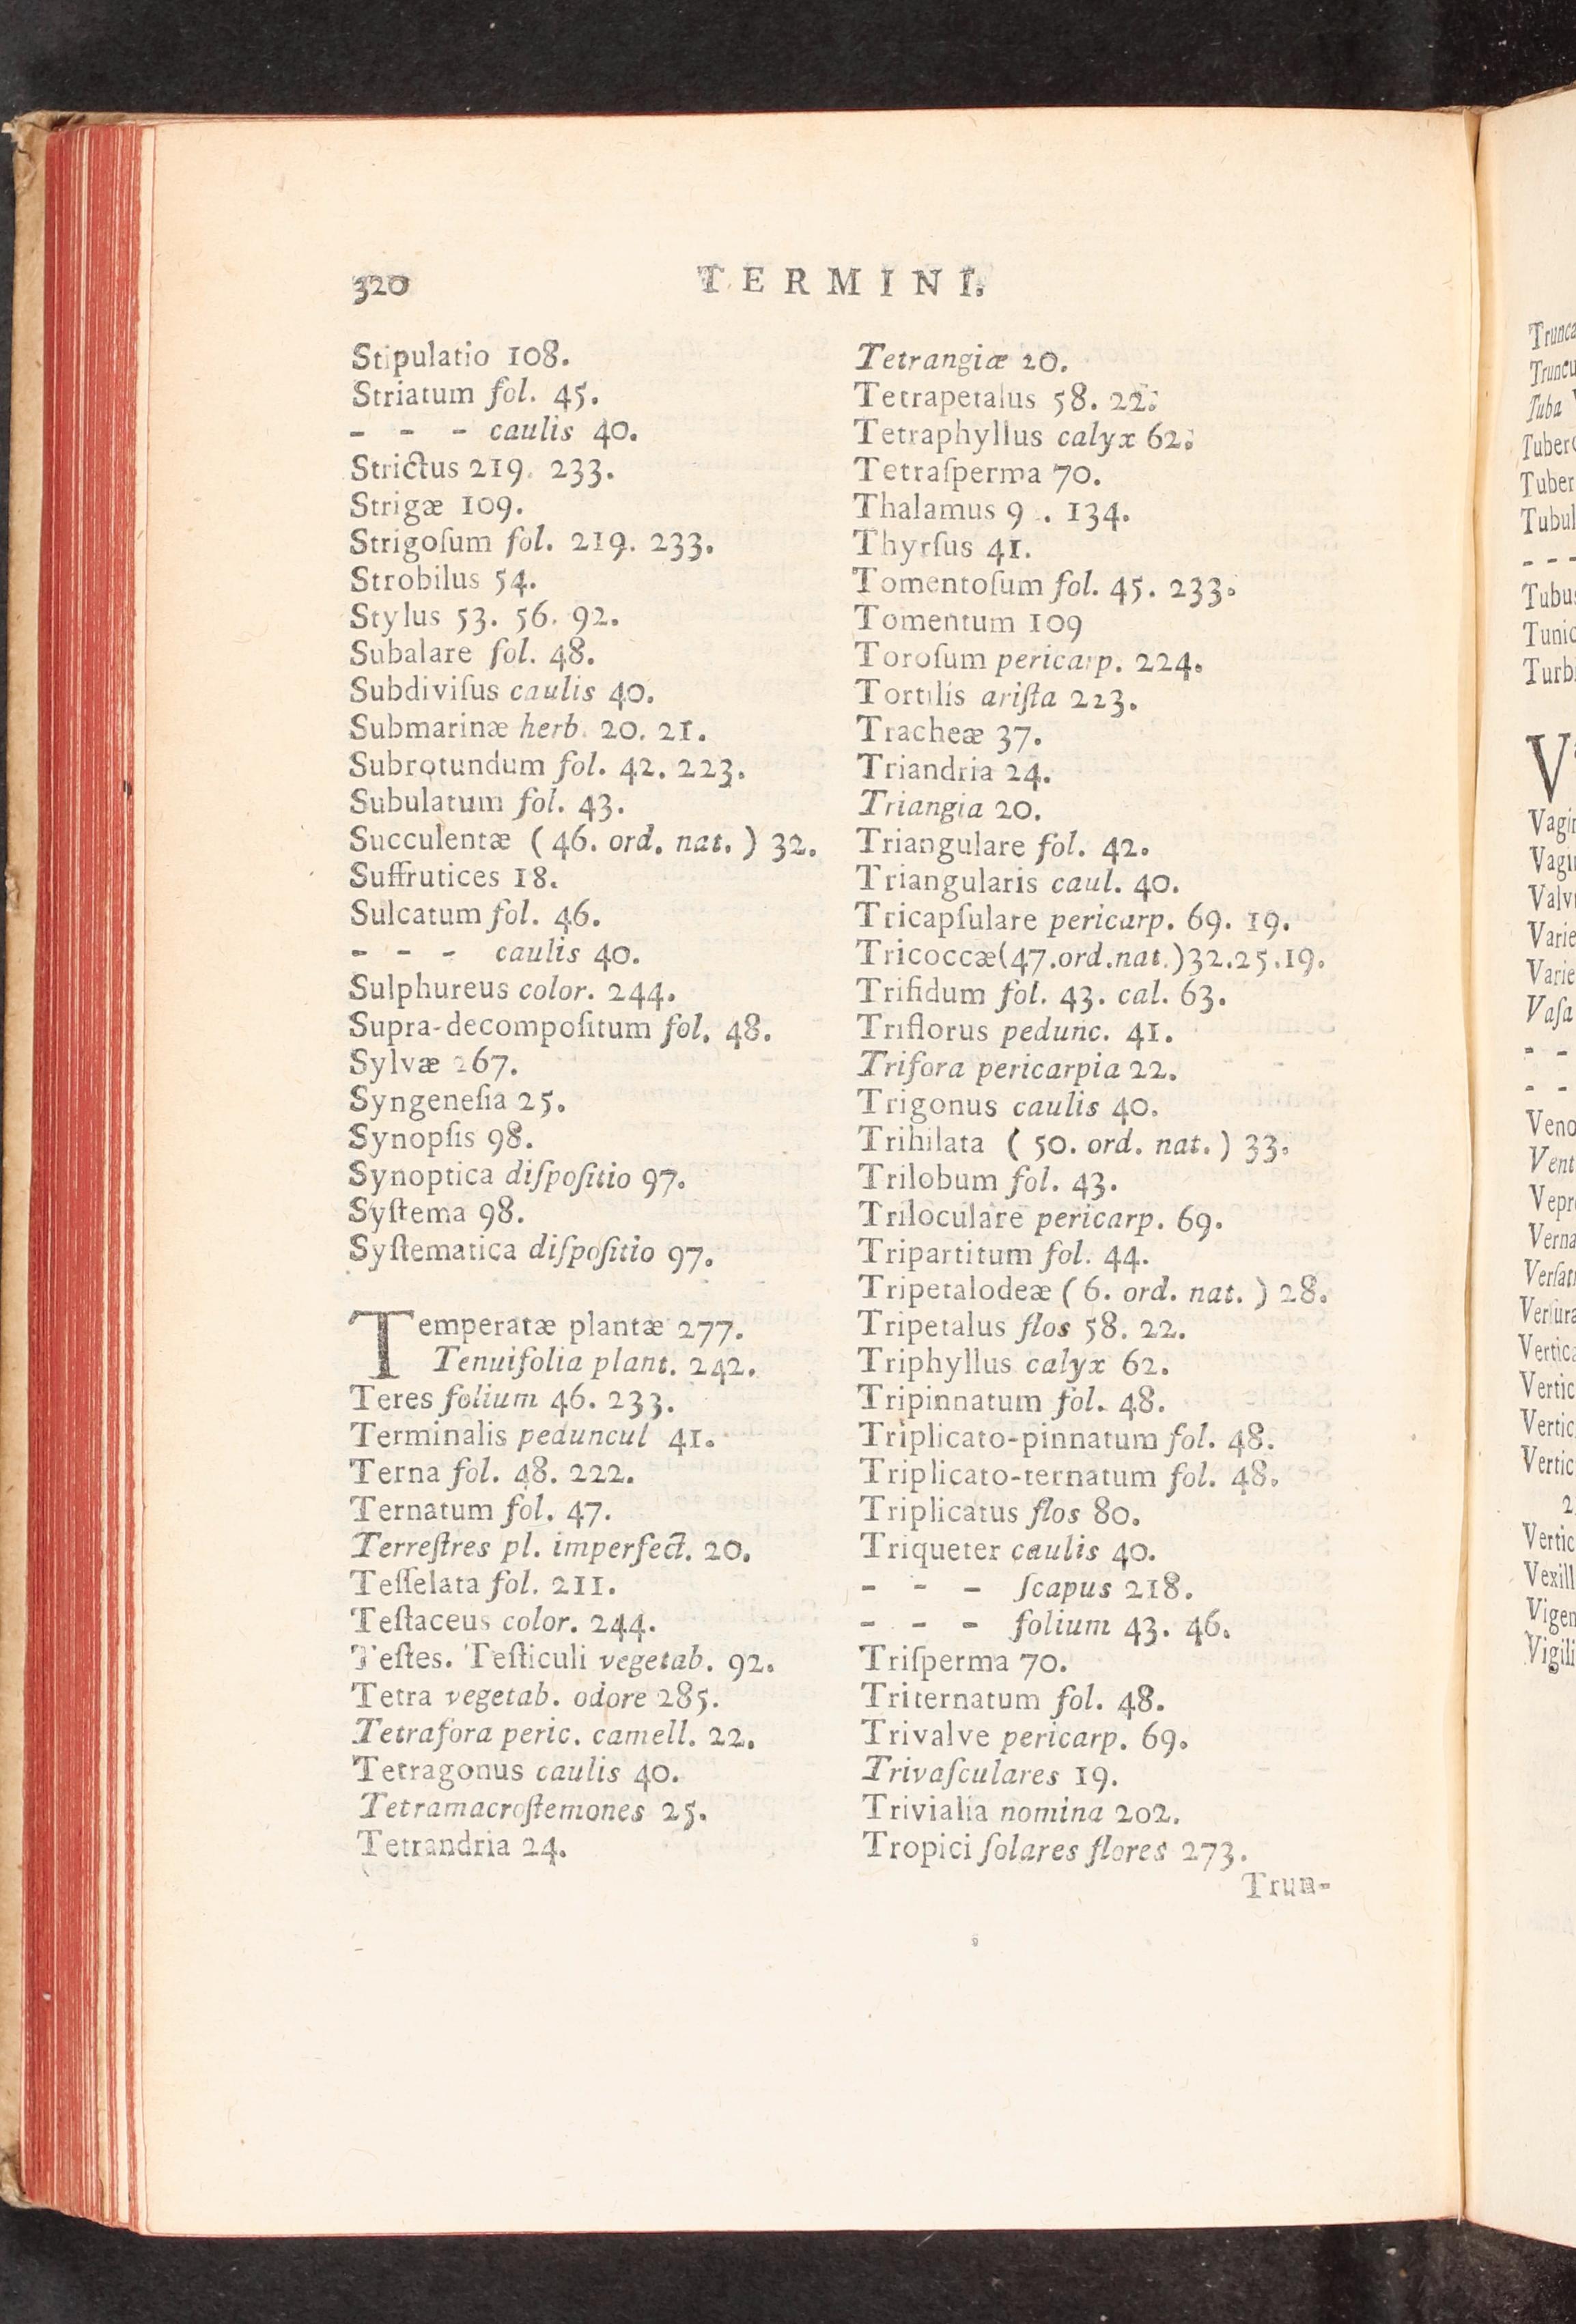 320
TERMINI.
Stipulatio 108.
Striatum fol. 45.
- - - caulis 40.
Strictus 219. 233.
Strigæ 109.
Strigoſum fol. 219. 233.
Strobilus 54.
Stylus 53. 56. 92.
Subalare fol. 48.
Subdiviſus caulis 40.
Submarinæ herb. 20. 21.
Subrotundum fol. 42. 223.
Subulatum fol. 43.
Succulentæ ( 46. ord. nat. ) 32.
Suffrutices 18.
Sulcatum fol. 46.
- - - caulis 40.
Sulphureus color. 244.
Supra-decompoſitum fol. 48.
Sylvæ 267.
Syngeneſia 25.
Synopſis 98.
Synoptica diſpoſitio 97.
Syſtema 98.
Syſtematica diſpoſitio 97.
Temperatæ plantæ 277.
Tenuifolia plant. 242.
Teres folium 46. 233.
Terminalis peduncul 41.
Terna fol. 48. 222.
Ternatum fol. 47.
Terreſtres pl. imperfect. 20.
Teſſelata fol. 211.
Teſtaceus color. 244.
Teſtes. Teſticuli vegetab. 92.
Tetra vegetab. odore 285.
Tetrafora peric. camell. 22.
Tetragonus caulis 40.
Tetramacroſtemones 25.
Tetrandria 24.
Tetrangiæ 20.
Tetrapetalus 58. 22.
Tetraphyllus calyx 62.
Tetraſperma 70.
Thalamus 9 . 134.
Thyrſus 41.
Tomentoſum fol. 45. 233.
Tomentum 109
Toroſum pericarp. 224.
Tortilis ariſta 223.
Tracheæ 37.
Triandria 24.
Triangia 20.
Triangulare fol. 42.
Triangularis caul. 40.
Tricapſulare pericarp. 69. 19.
Tricoccæ(47.ord.nat.)32.25.19.
Trifidum fol. 43. cal. 63.
Triflorus pedunc. 41.
Trifora pericarpia 22.
Trigonus caulis 40.
Trihilata ( 50. ord. nat. ) 33.
Trilobum fol. 43.
Triloculare pericarp. 69.
Tripartitum fol. 44.
Tripetalodeæ ( 6. ord. nat. ) 28.
Tripetalus flos 58. 22.
Triphyllus calyx 62.
Tripinnatum fol. 48.
Triplicato-pinnatum fol. 48.
Triplicato-ternatum fol. 48.
Triplicatus flos 80.
Triqueter caulis 40.
- - - ſcapus 218.
- - - folium 43. 46.
Triſperma 70.
Triternatum fol. 48.
Trivalve pericarp. 69.
Trivaſculares 19.
Trivialia nomina 202.
Tropici ſolares flores 273.
Trun-